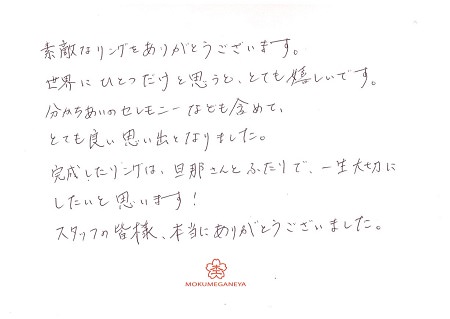 素敵なリングをありがとうございます。
世界にひとつだけと思うと、とても嬉しいです。
分かちあいのセレモニーなども含めて、
とても良い思い出となりました。
完成したリングは、旦那さんとふたりで、一生大切に
したいと思います!
スタッフの皆様、本当にありがとうございました。
MOKUMEGANEYA